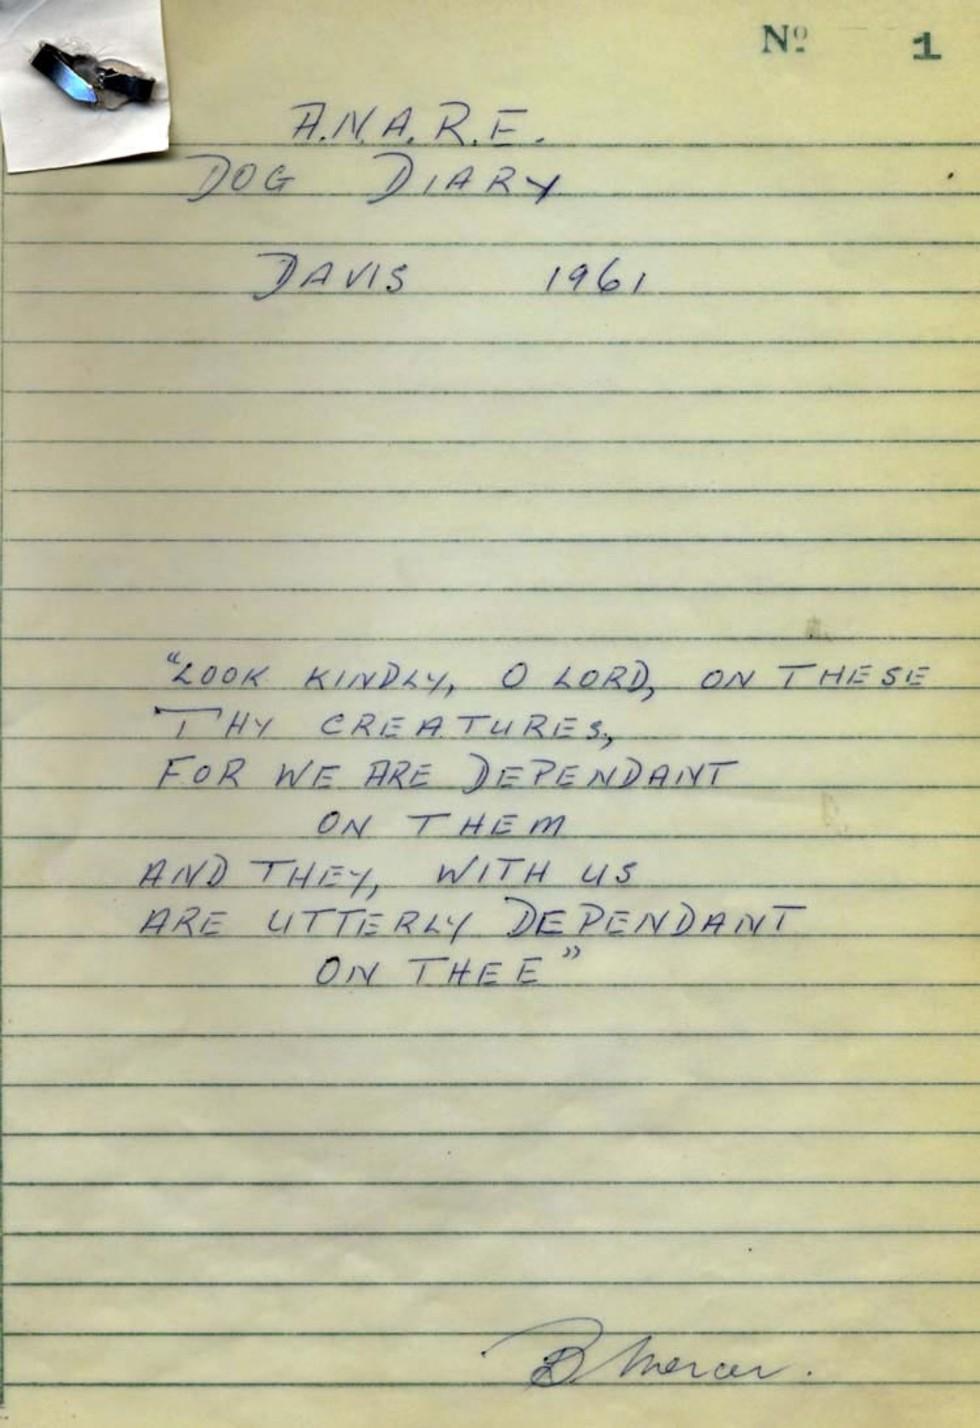 Nº 1
A.N.A.R.E.
DOG DIARY
DAVIS 1961
"LOOK KINDLY, O LORD, ON THESE
THY CREATURES,
FOR WE ARE DEPENDANT
ON THEM
AND THEY, WITH US
ARE UTTERLY DEPENDANT
ON THEE"
B Mercer.